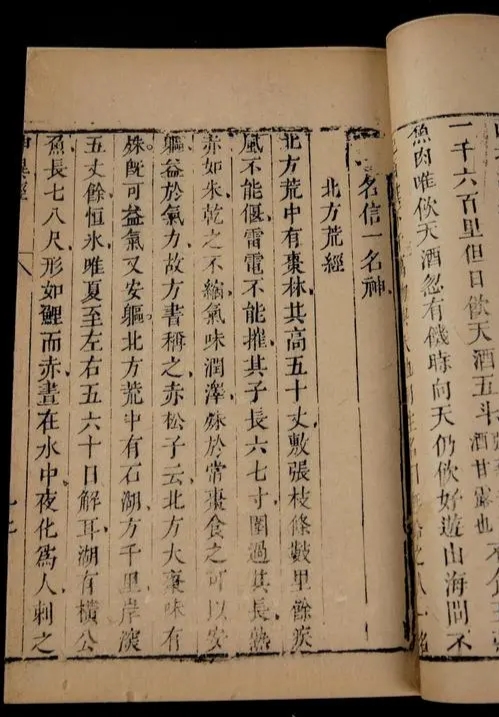 一千六百里但日飲天酒五斗酒甘露也
魚肉唯飲天酒忽有饑時向天仍飲好遊山海間不
名信一名神
北方荒經
北方荒中有棗林其高五十丈敷張枝條數里餘疾
風不能偃雷電不能摧其子長六七寸圍過其長熟
赤如朱乾之不縮氣味潤澤殊於常棗食之可以安
軀益於氣力故方書稱之赤松子云北方大棗味有
殊旣可益氣又安軀北方荒中有石湖方千里岸深
五丈餘恒氷唯夏至左右五六十日解耳湖有橫公
魚長七八尺形如鯉而赤晝在水中夜化爲人刺之